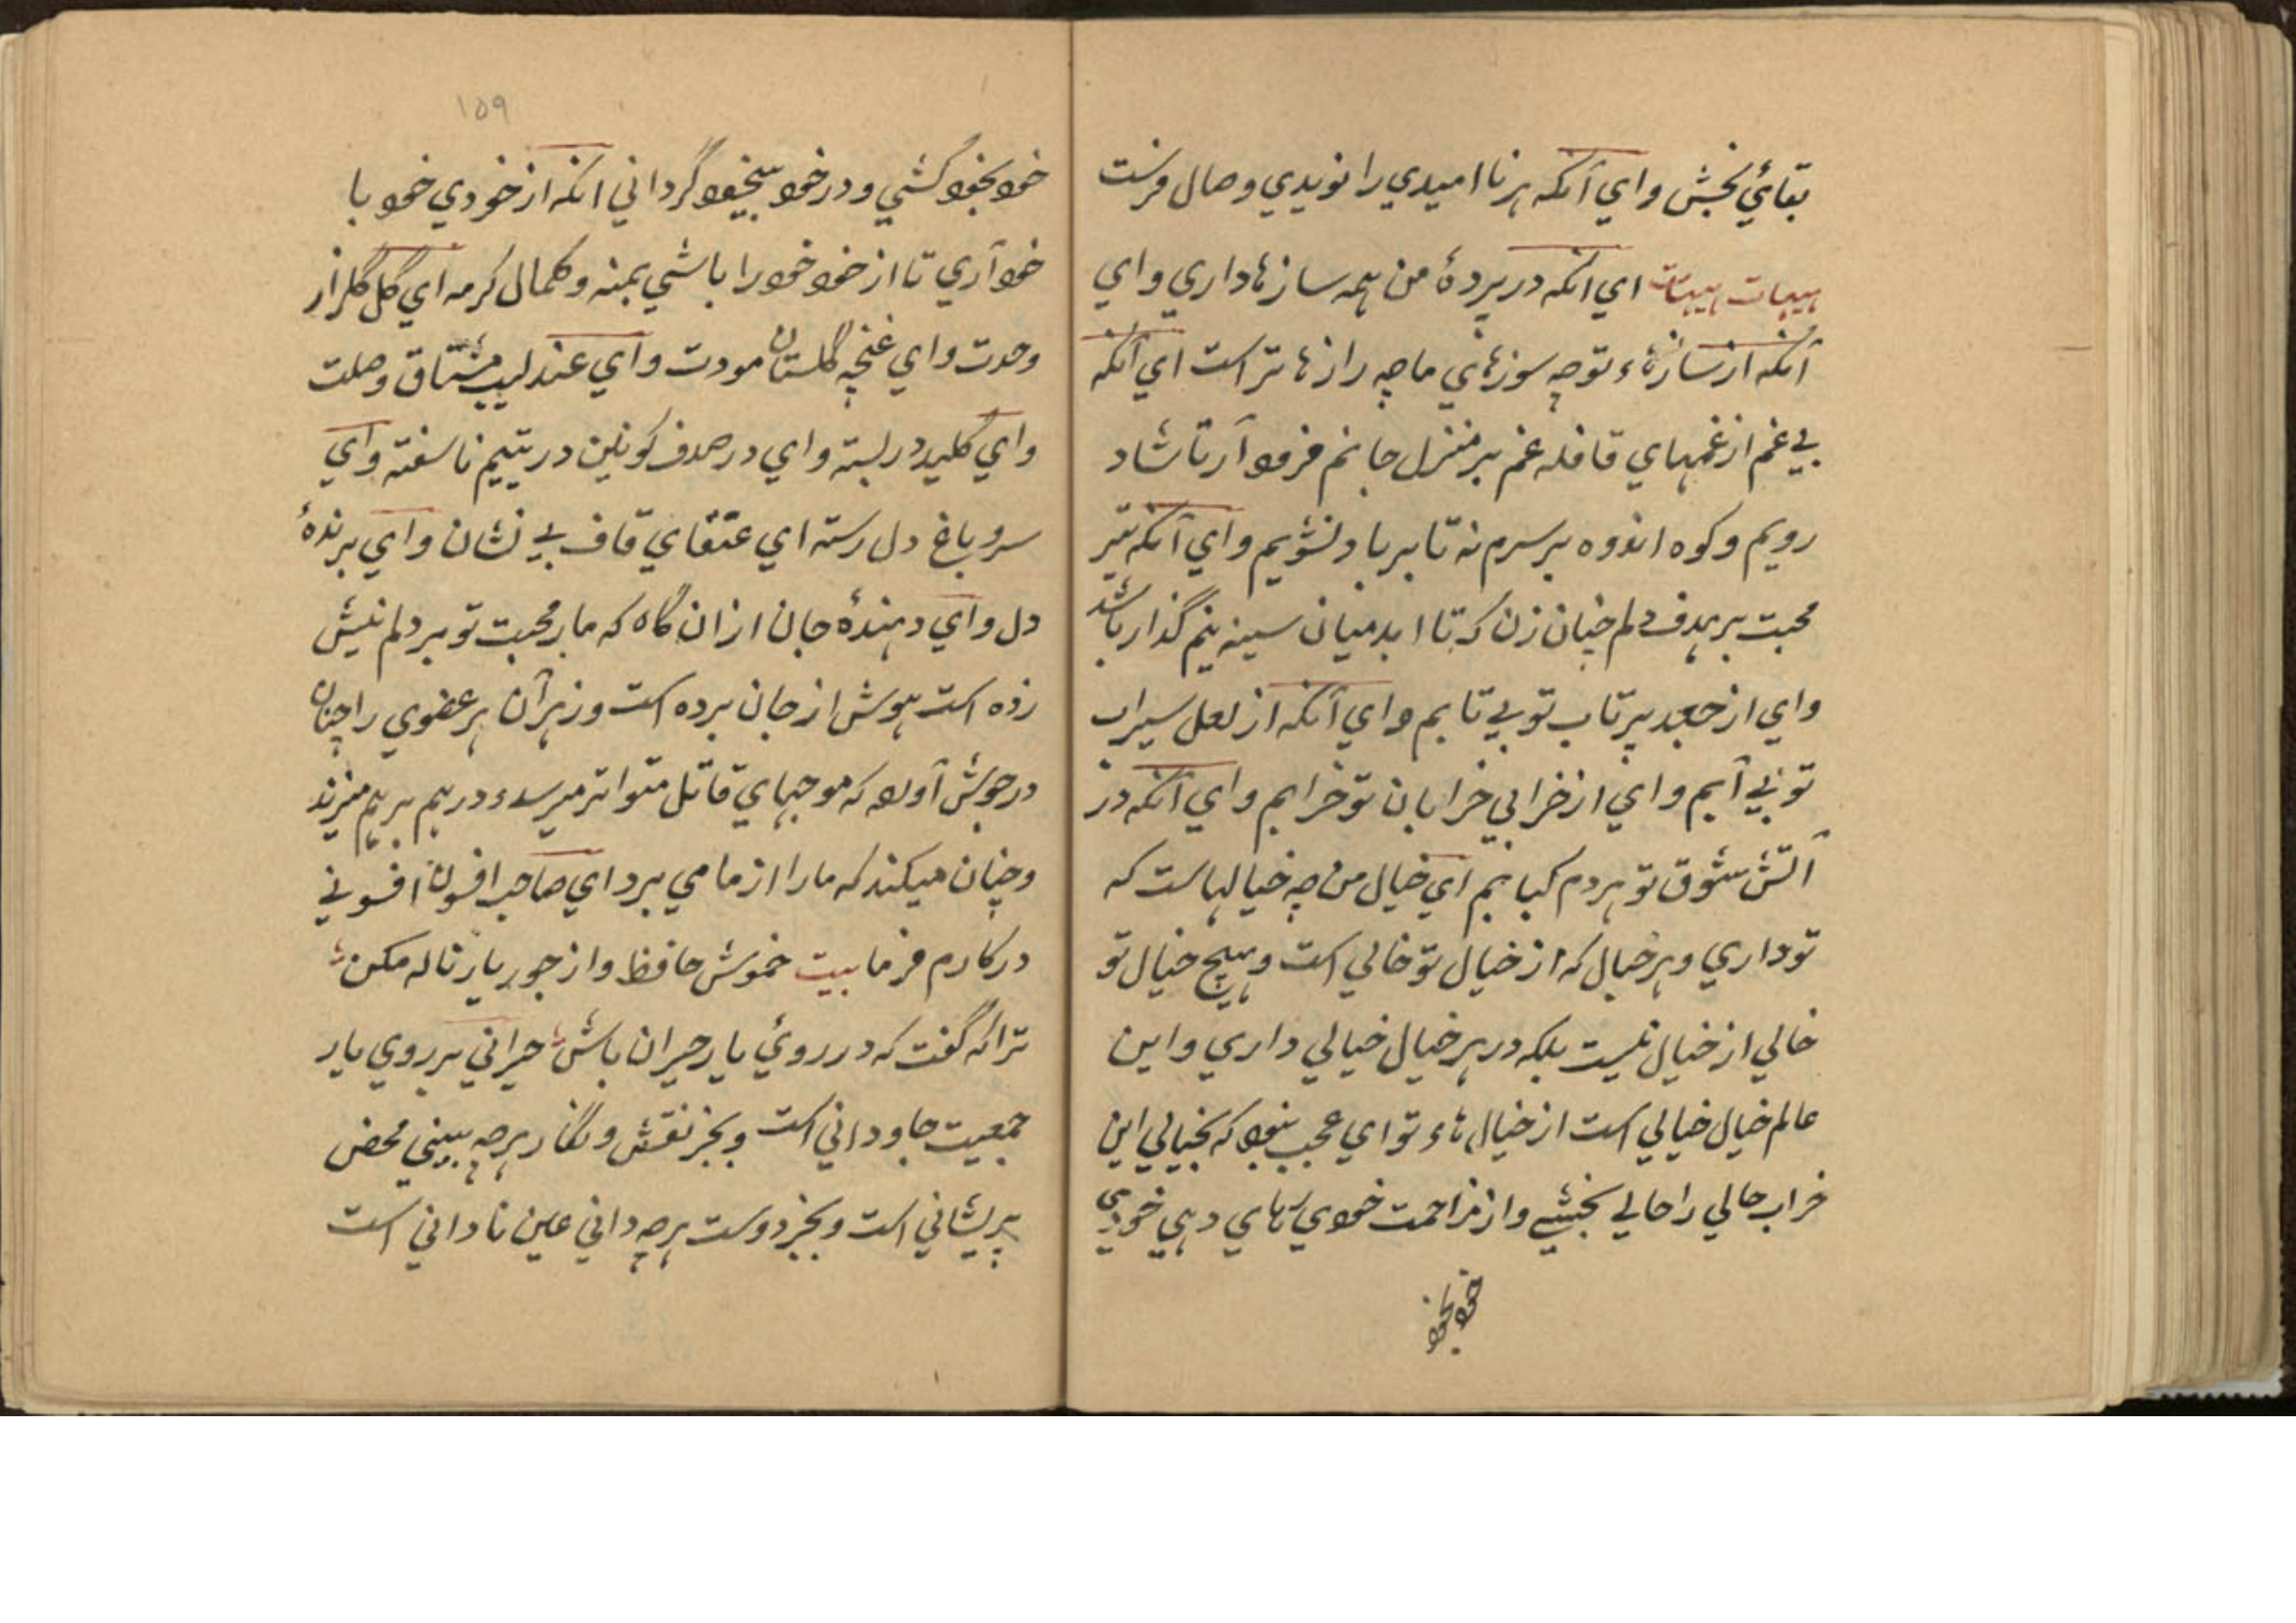 بقائي بخش و اي آنکه هر نا اميدي را نويدي وصال فرست
هيهات هيهات اي انکه در پردۀ من همه سازها داري و اي
آنکه از سازهاء تو چه سوزهاي ما چه رازها تراست اي آنکه
بي غم از غمهاي قافله غم بر منزل جانم فرود آر تا شاد
رويم و کوه اندوه بر سرم نه تا بر باد نشويم و اي آنکه تير
محبت بر هدف دلم چنان زن که تا ابد ميان سينه‌ينم گذار باشد
و اي از جعد پرتاب تو بي تابم و اي آنکه از لعل سيراب
تو بي آبم و اي از خرابي خرابان تو خرابم و اي آنکه در
آتش شوق تو هر دم کبابنم اي خيال من چه خيالهاست که
تو داري و هر خيال که از خيال تو خالي است و هيچ خيال تو
خالي از خيال نيست بلکه در هر خيال خيالي داري و اين
عالم خيال خيالي است از خيال هاء تو اي عجب نبود که بخيالي اين
خراب حالي را حالے بخشے و از مزاحمت خودي رهاي دهي خودي
خود بخود
۱۵۹
خود بخود کشي و در خود بيخود گرداني انکه از خودي خود با
خود آري تا از خود خود را باشي بمنه و کمال کرمه اي گل گلزار
وحدت و اي غنچه گلستان مودت و اي عندليب مشتاق وصلت
و اي کليد در بسته و اي در صدف کونين در يتيم نا سفته و اي
سرو باغ دل رسته اي عنقاي قاف بي نشان و اي برندۀ
دل و اي دهندۀ جان از ان گاه که مار محبت تو بر دلم نيش
زده است هوش از جان برده است و زهر آن هر عضوي را چنان
در جوش آورد که موجهاي قاتل متواتر ميرسد و درهم بر هم ميزند
و چنان ميکند که ما را از ما مي برد اي صاحب افسون افسوني
در کارم فرما بيت خموش حافظ و از جور يار ناله مکن
ترا که گفت که در روئي يار حيران باش حيراني بر روي يار
جمعيت جاوداني است و بجز نقش و نگار هرچه بيني محض
پريشاني است و بجز دوست هرچه داني عين ناداني است